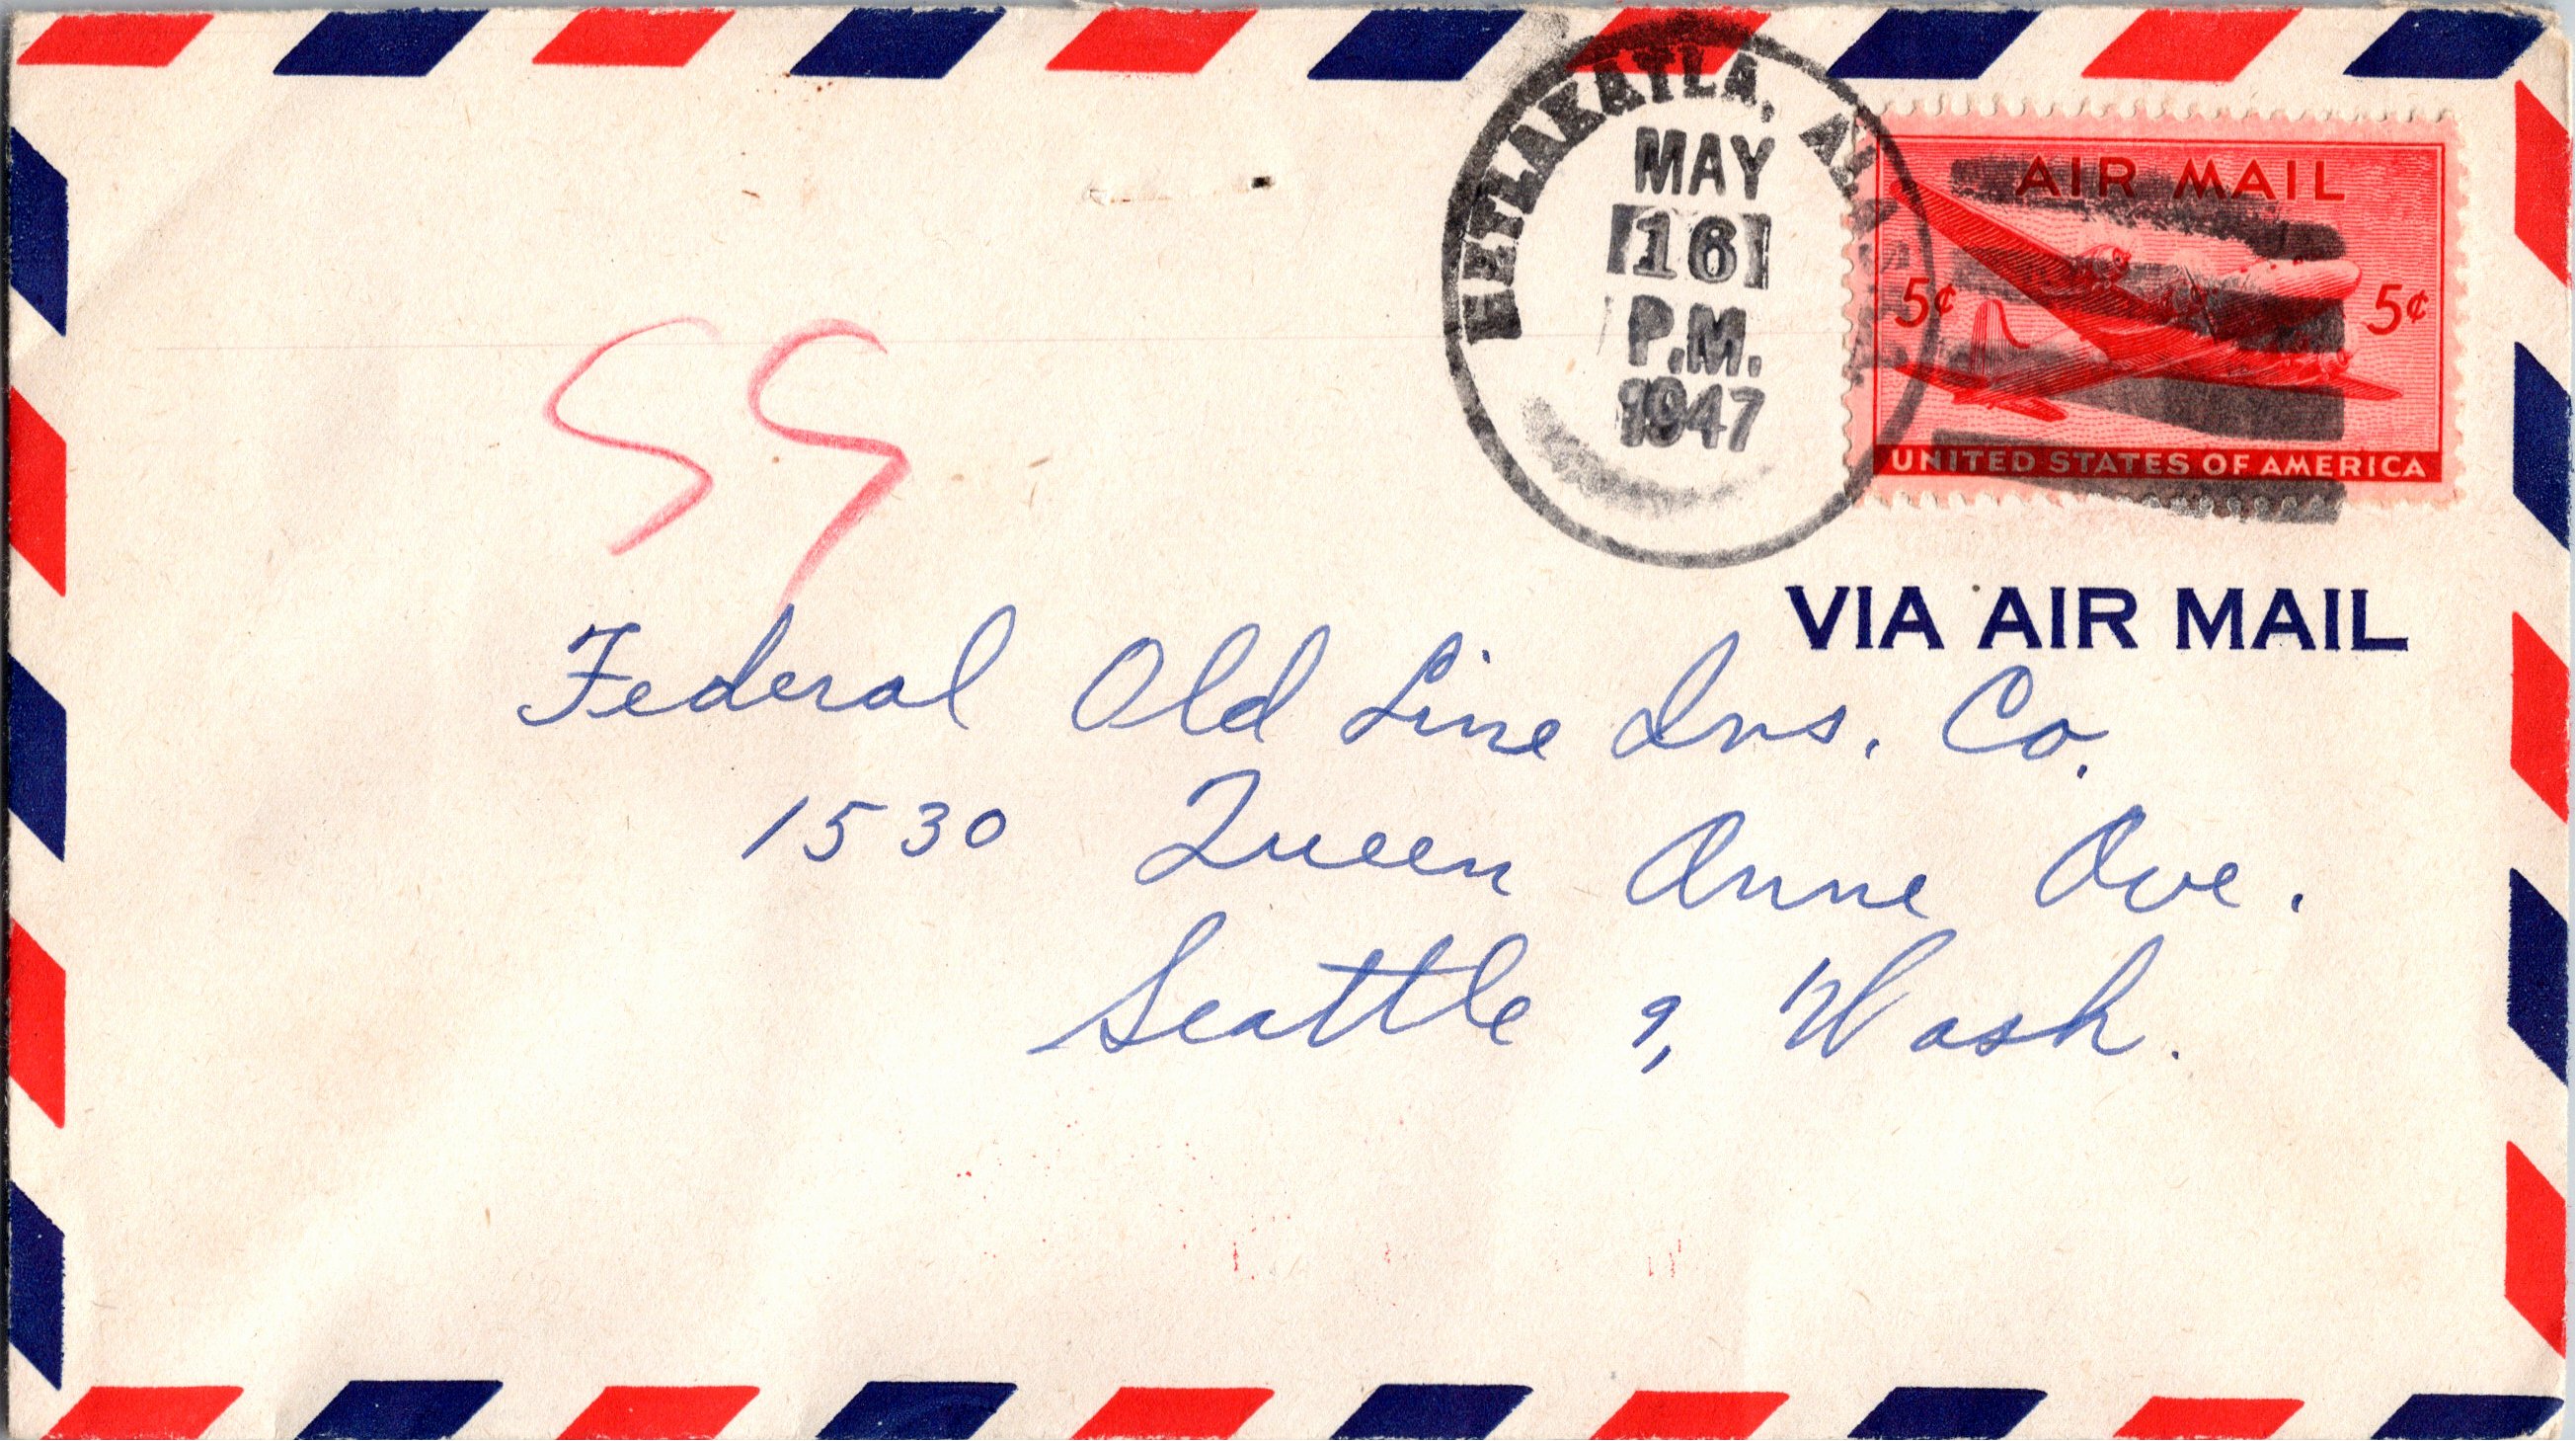 METLAKATLA, ALASKA
MAY
16
P.M.
1947
AIR MAIL
5¢ 5¢
UNITED STATES OF AMERICA
VIA AIR MAIL
Federal Old Line Ins. Co.
1530 Queen Anne Ave.
Seattle 9, Wash.